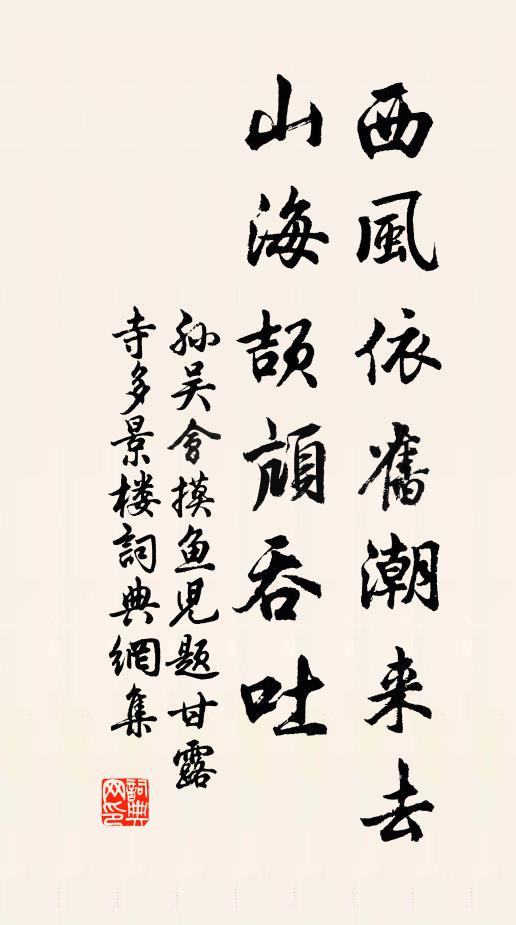 西風依舊潮来去
山海頡頏吞吐
孙吴會摸鱼児题甘露
寺多景楼詞典網集
詞典网印